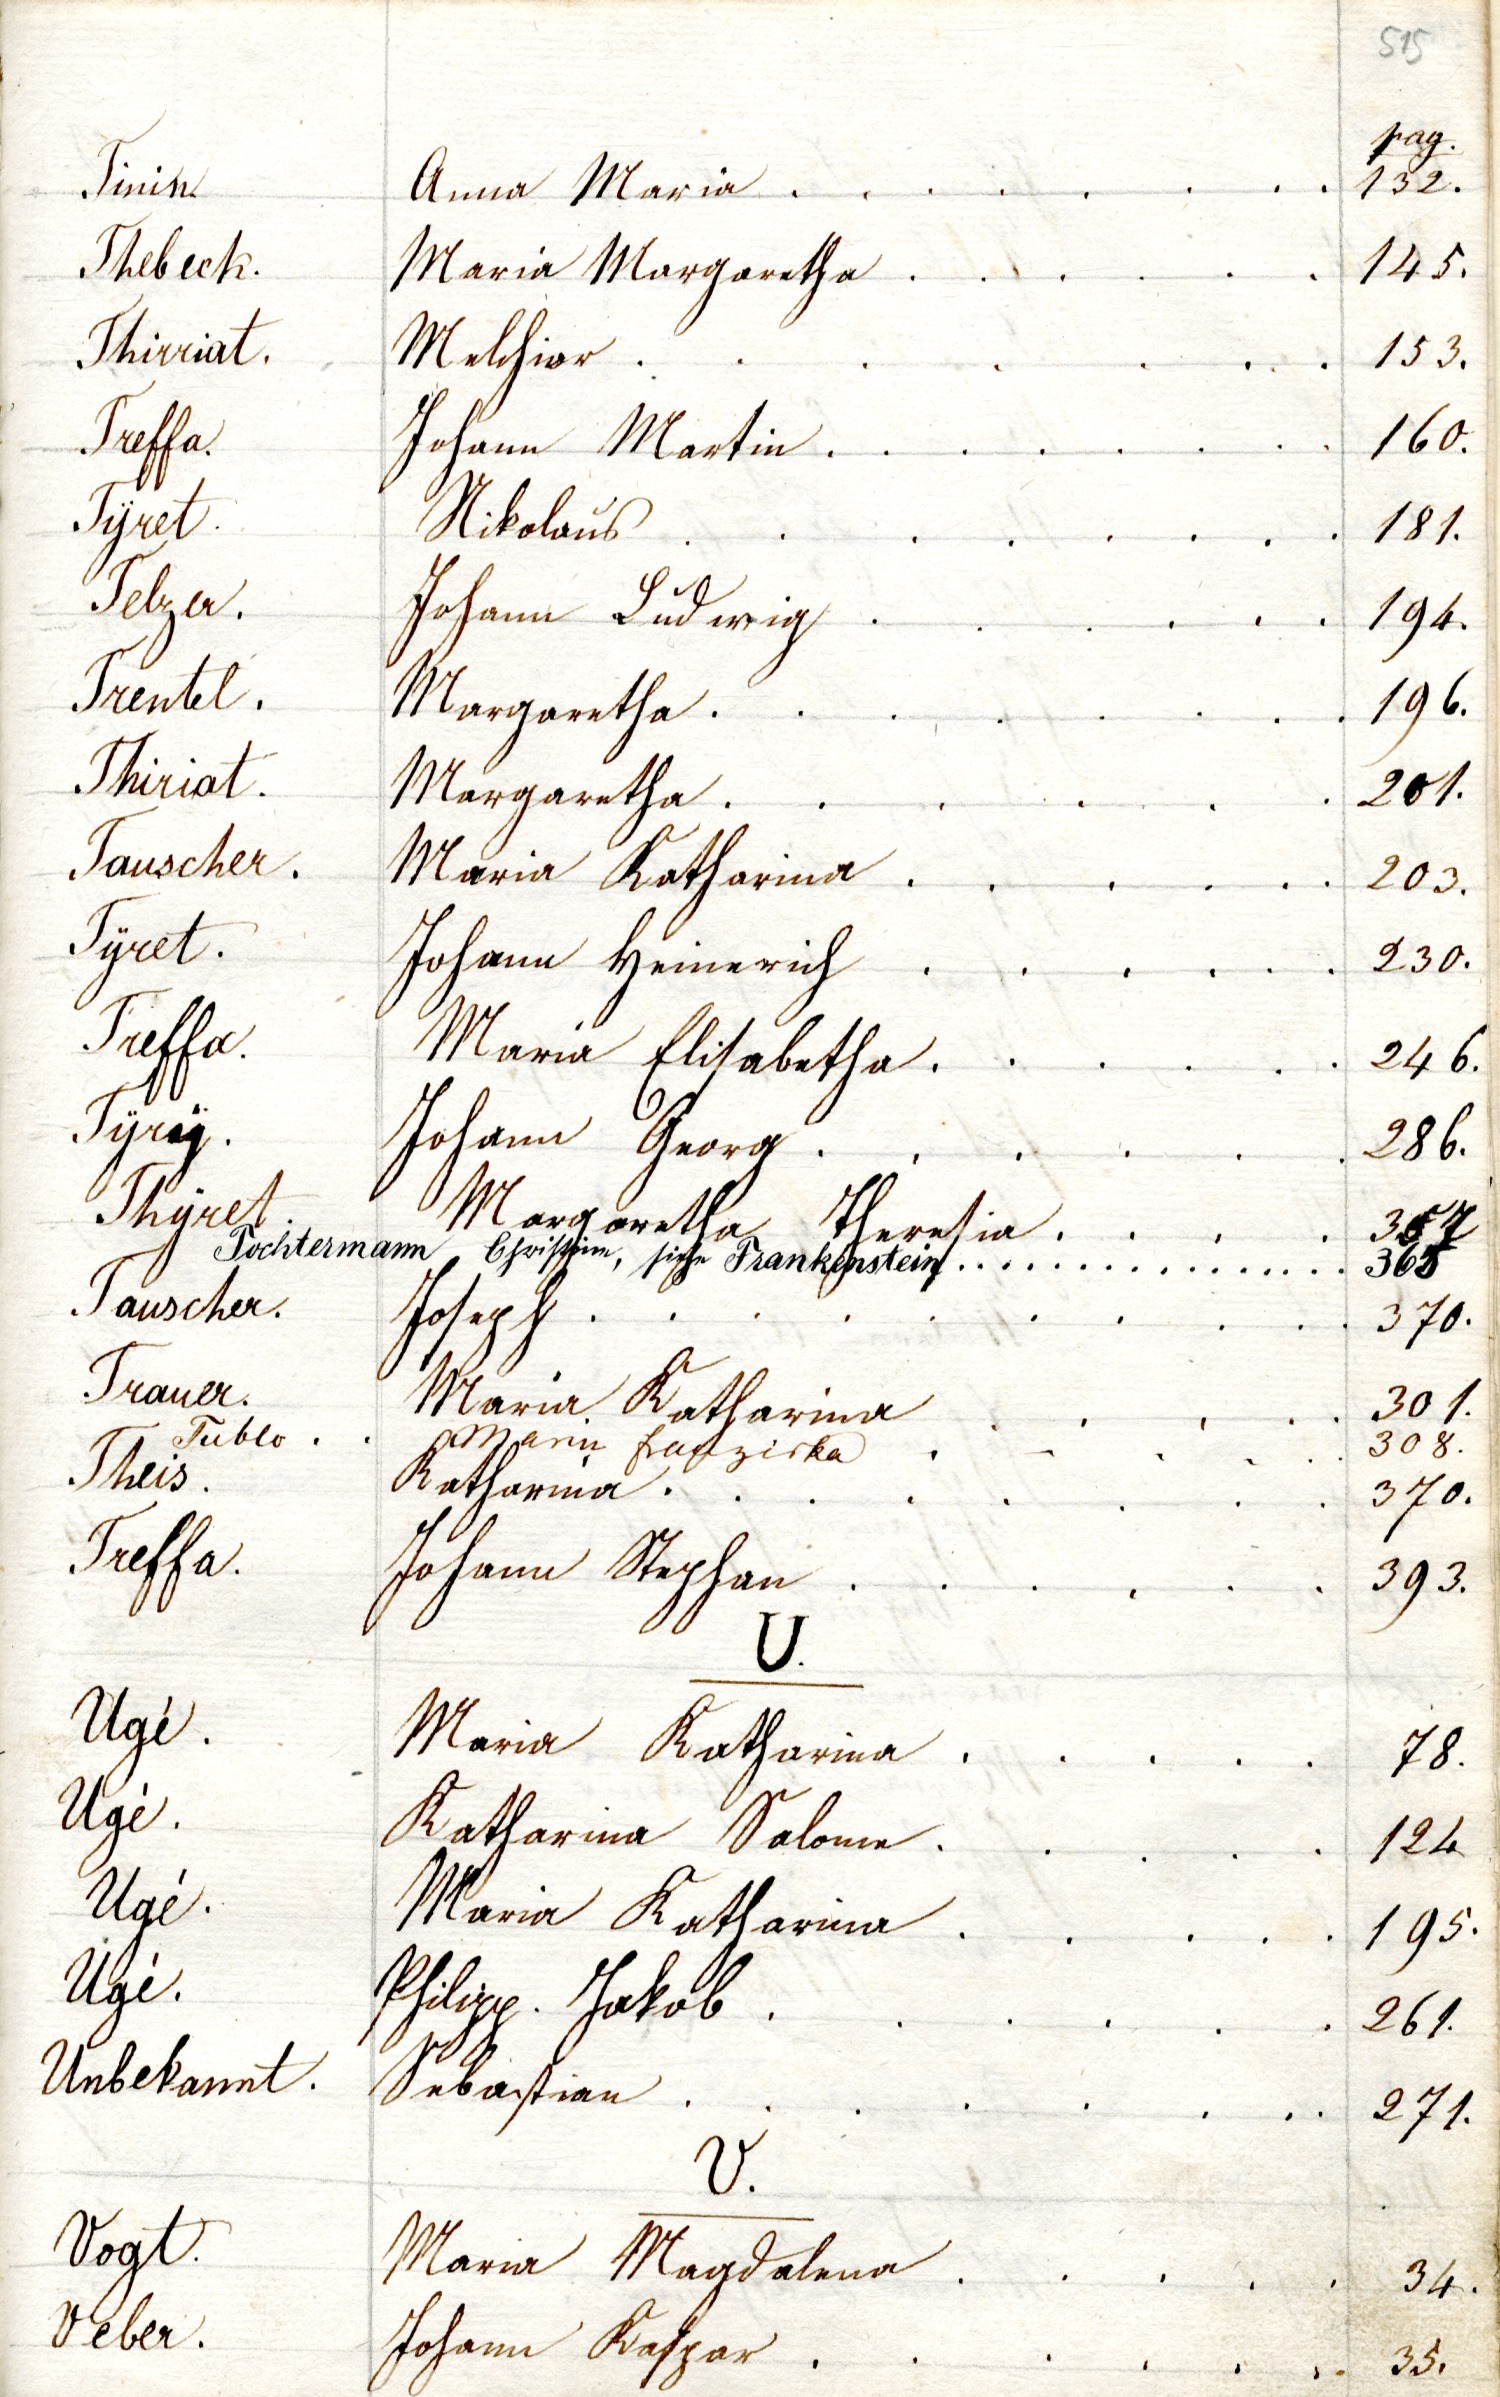 515
pag.
Tinin Anna Maria . . . . . . . . 132.
Thebeck. Maria Margaretha . . . . . . 145.
Thirriat. Melchior . . . . . . . 153.
Treffa. Johann Martin . . . . . . . 160.
Tÿret. Nikolaus . . . . . . . . 181.
Telzer. Johann Ludwig . . . . . . 194.
Trentel. Margaretha . . . . . . . . 196.
Thiriat. Margaretha . . . . . . . 201.
Tauscher. Maria Katharina . . . . . . 203.
Tÿret. Johann Heinerich . . . . . . 230.
Treffa. Maria Elisabetha . . . . . . 246.
Tÿrÿ. Johann Georg . . . . . . 286.
Thÿret. Margaretha Theresia . . . . .
Tochtermann Christine, siehe Frankenstein ................ 365
Tauscher. Joseph . . . . . . . . . 370.
Trauer. Maria Katharina . . . . . 301.
Tublo . . Maria Franziska . . . . . 308.
Theis. Katharina . . . . . . . . 370.
Treffa. Johann Stephan . . . . . . 393.
U.
Ugé. Maria Katharina . . . . . 78.
Ugé. Katharina Salome . . . . . 124
Ugé. Maria Katharina . . . . . 195.
Ugé. Philipp. Jakob . . . . . . 261.
Unbekannt. Sebastian . . . . . . . . 271.
V.
Vogt. Maria Magdalena . . . . . 34.
Veber. Johann Kaspar . . . . . . . 35.